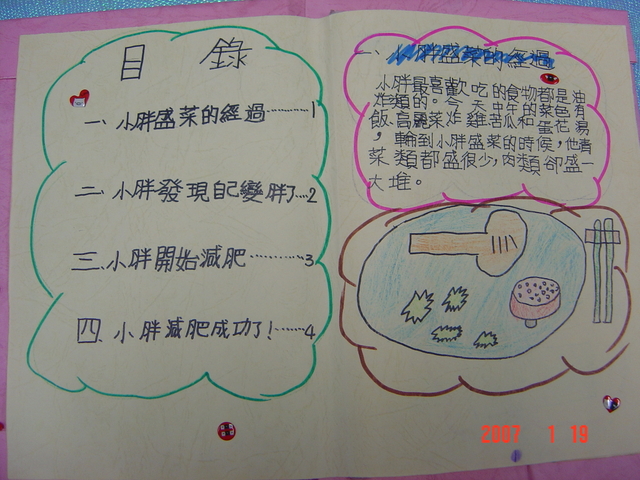 目 錄
一、小胖盛菜的經過………1
二、小胖發現自己變胖了…2
三、小胖開始減肥…………3
四、小胖減肥成功了!……4
一、小胖盛菜的經過
小胖最喜歡吃的食物都是油
炸類的。今天中午的菜色有
飯、高麗菜炸雞苦瓜和蛋花湯
,輪到小胖盛菜的時候,他青
菜類都盛很少,肉類卻盛一
大堆。
2007 1 19